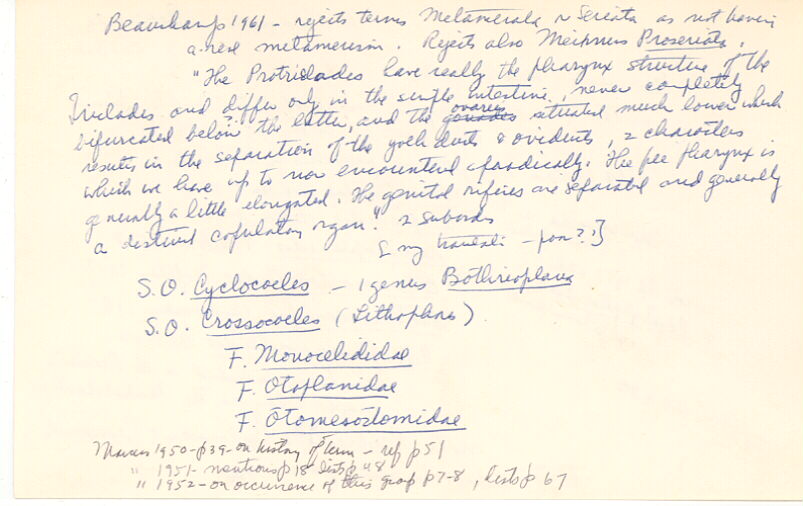 Beauchamp 1961 - rejects terms Metamerata or Seriata as not having
a real metamerism. Rejects also Meixner's Proseriata.
"The Protriclades have really the pharynx structure of the
Triclades and differ only in the simple intestine, never completely
bifurcated below the latter, and the gonades ovaries situated much lower which
results in the separation of the yolk ducts & oviducts, 2 characters
which we have up to now encountered sporadically. The free pharynx is
generally a little elongated. The genital orifices are separated and generally
a distinct copulatory organ." 2 suborders
[my translati - poor?]
S.O. Cyclocoeles - 1 genus Bothrioplana
S.O. Crossocoeles (Lithophores)
F. Monocelididae
F. Otoplanidae
F. Otomesostomidae
Marcus 1950 - p39 - on history of term - ref p51
" 1951 - mentions p18 lists p48
" 1952 - on occurrence of this group p7-8, lists p 67